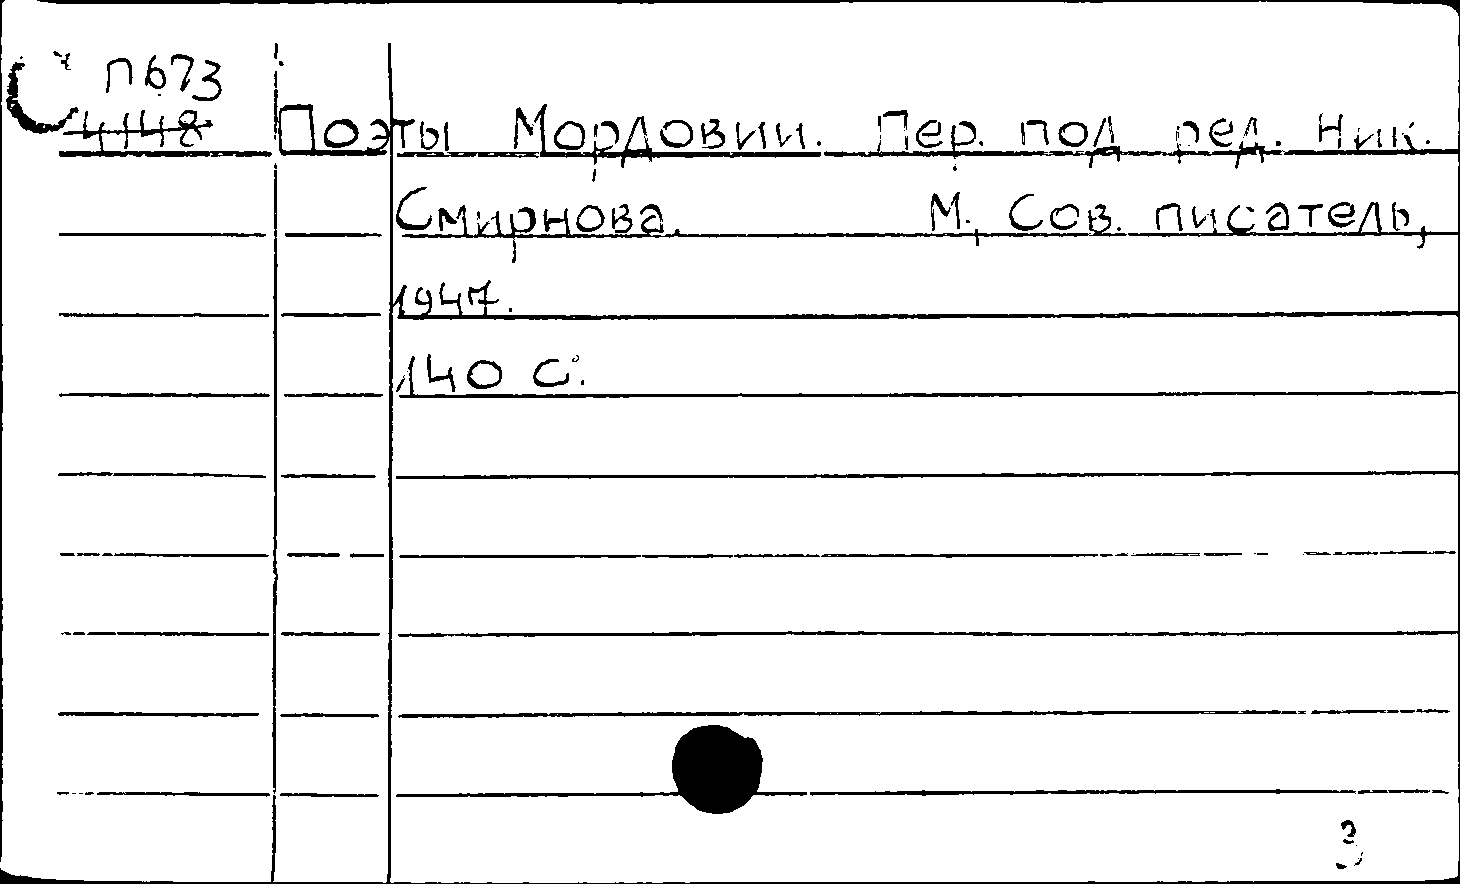 С П673
4148
Поэты Мордовии. Пер. под ред. Ник.
Смирнова. М., Сов. писатель,
1947.
140 с.
3